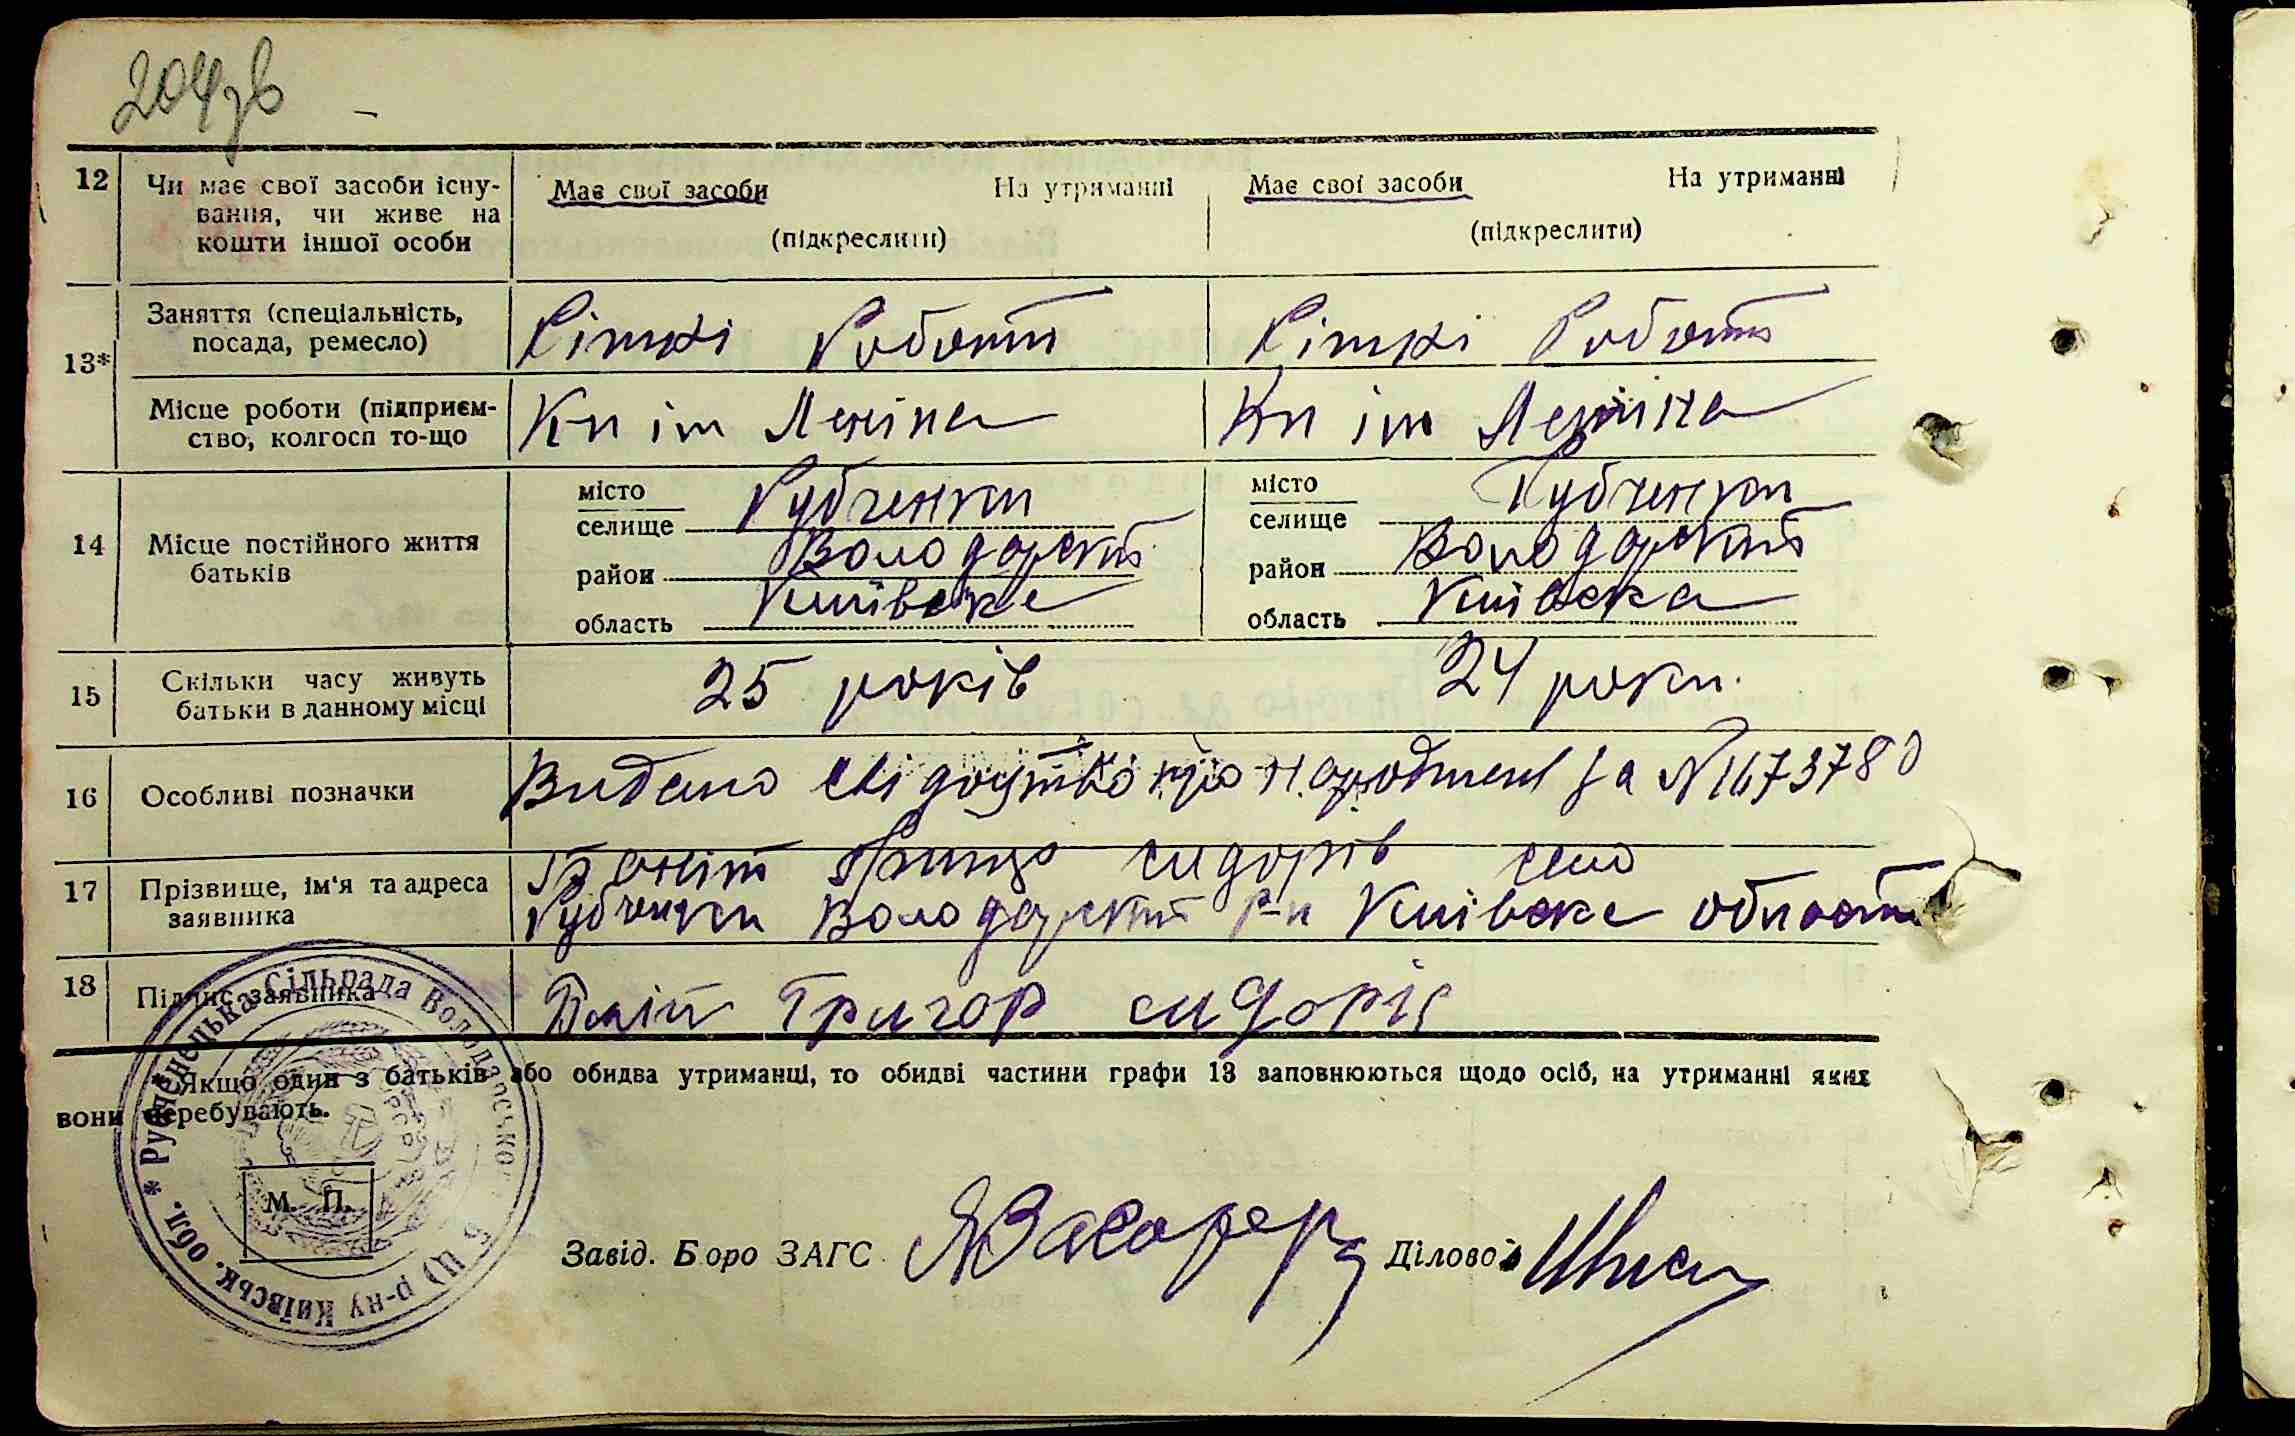 204зв
12 Чи має свої засоби існу- Має свої засоби На утриманні Має свої засоби На утриманні
вання, чи живе на
кошти іншої особи (підкреслити) (підкреслити)
13* Заняття (спеціальність, Ріжні Роботи Ріжні Роботи
посада, ремесло)
Місце роботи (підприєм- Кп ім Леніна Кп ім Леніна
ство, колгосп то-що
14 Місце постійного життя батьків
місто селище Рубченки місто селище Рубченки
район Володарский район Володарский
область Київске область Київска
15 Скільки часу живуть 25 років 24 роки.
батьки в данному місці
16 Особливі позначки Видано свідоцтво про народженя за №1673780
17 Прізвище, ім'я та адреса Гриць сидорів село
заявника Рубченки Володарский р-н Київске області
18 Підпис заявника Григор сидорів
* Якщо один з батьків або обидва утриманці, то обидві частини графи 13 заповнюються щодо осіб, на утриманні яких
вони перебувають.
* Рубченецька Сільрада Володарсько Б Ц) р-ну Київськ. обл.
УРСР
М. П.
Завід. Бюро ЗАГС Діловод